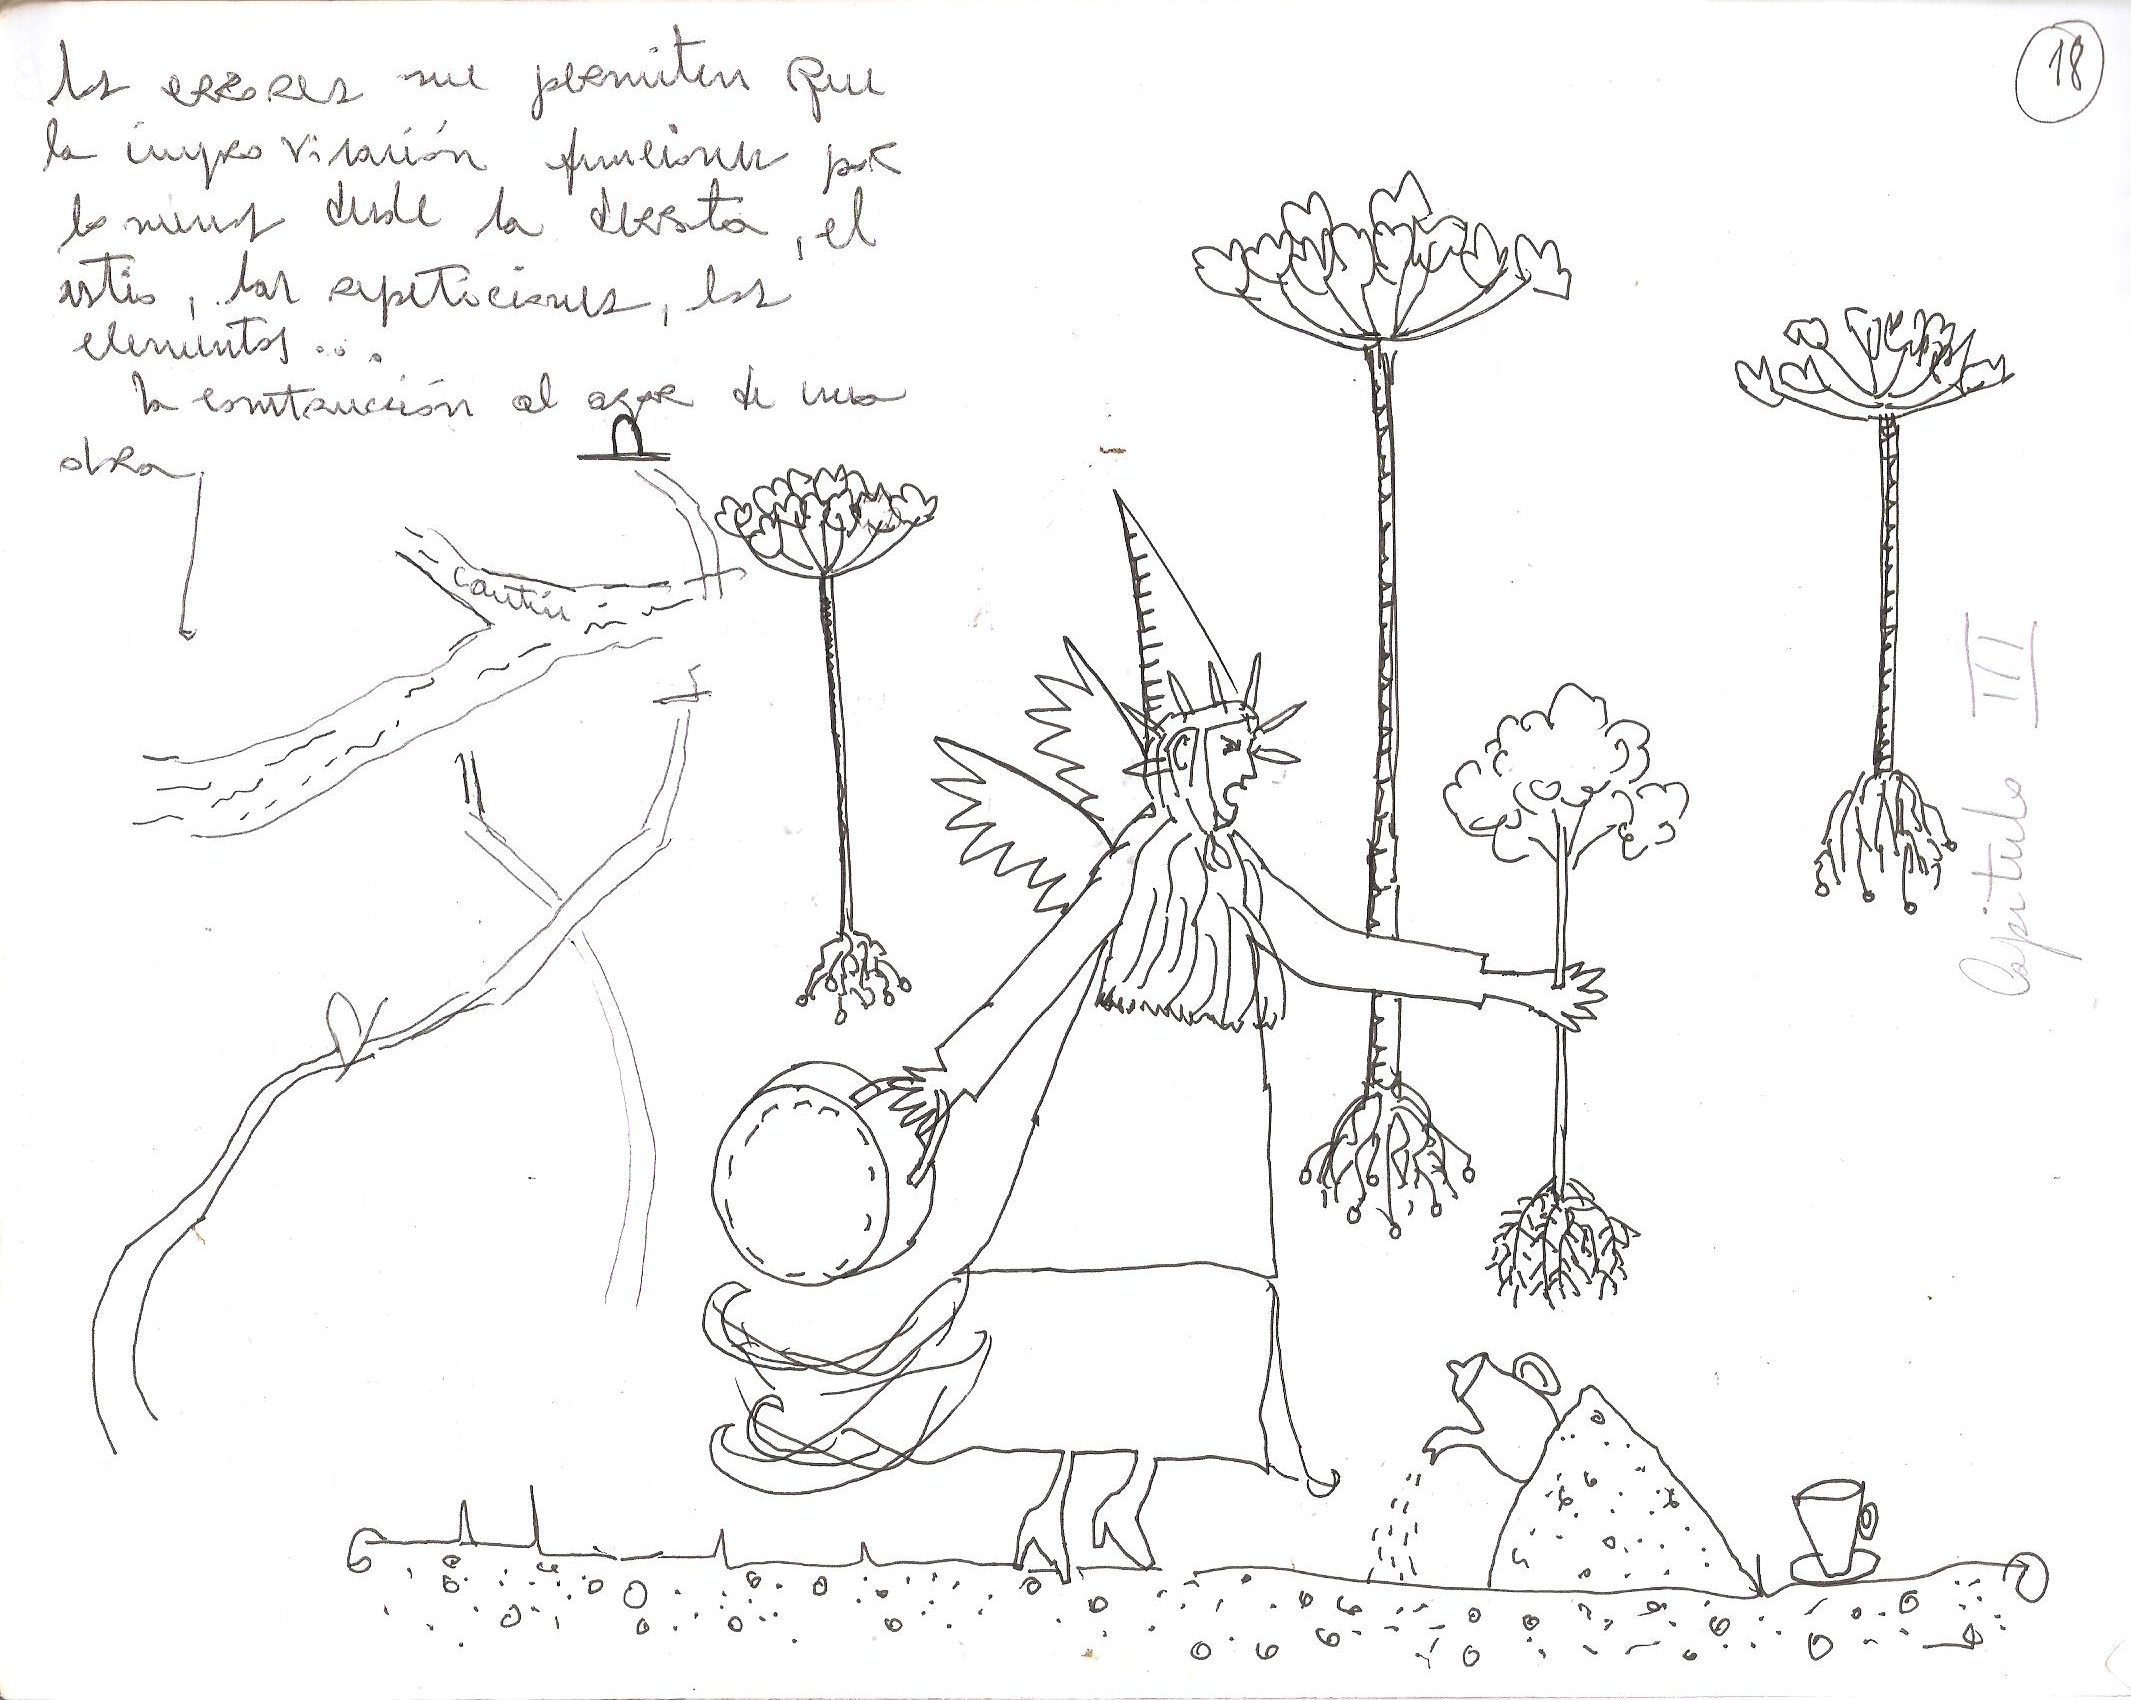 los errores me permiten que
la improvisación funcione por
lo menos desde la derrota, el
estio, las repeticiones, los
elementos...
la construcción al azar de una
obra
18
Cautín
Capitulo III